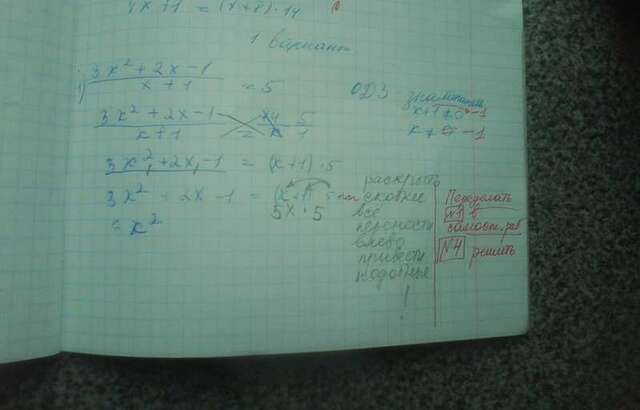 4x + 1 = (x+2)·14
1 вариант
1) 3x² + 2x - 1
x + 1
= 5
ОДЗ знаменатель
x+1≠0 -1
x ≠ -1
3x² + 2x - 1
x + 1
=
5
1
3x² + 2x - 1 = (x+1)·5
3x² + 2x - 1 = (x+1) 5
5x · 5
= x²
раскрыть
скобки
все
перенести
влево
привести
подобные
!
Переделать
№1 в
самост. раб
№4 решить